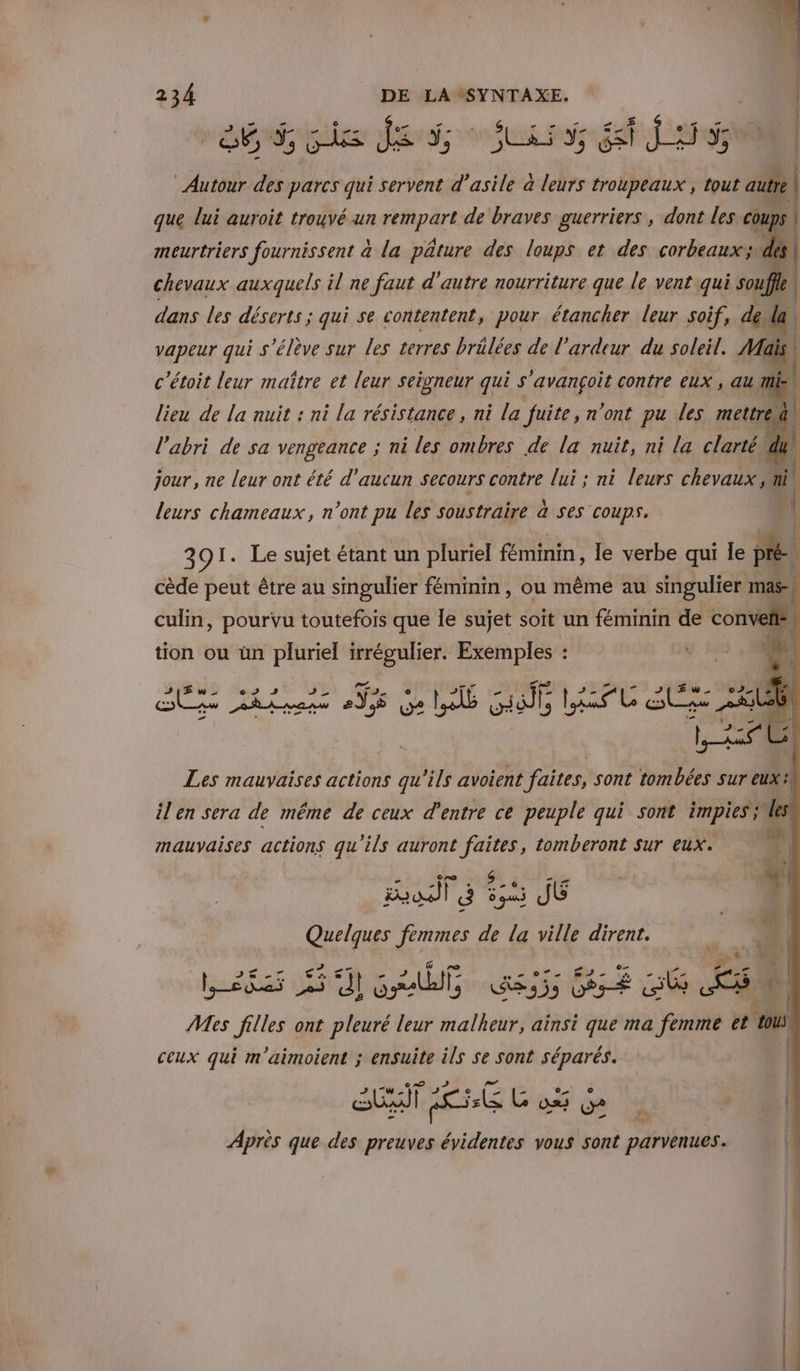 234 DE LA SYNTAXE.
وَلَا لَيْلٌ أَجَنَّ وَلَا نَهَارٌ وَلَا خَيْلٌ حَمَلْنَ وَلَا رِكَابُ
Autour des parcs qui servent d'asile à leurs troupeaux, tout autre
que lui auroit trouvé un rempart de braves guerriers, dont les coups
meurtriers fournissent à la pâture des loups et des corbeaux; des
chevaux auxquels il ne faut d'autre nourriture que le vent qui souffle
dans les déserts; qui se contentent, pour étancher leur soif, de la
vapeur qui s'élève sur les terres brûlées de l'ardeur du soleil. Mais
c'étoit leur maître et leur seigneur qui s'avançoit contre eux, au mi-
lieu de la nuit : ni la résistance, ni la fuite, n'ont pu les mettre à
l'abri de sa vengeance ; ni les ombres de la nuit, ni la clarté du
jour, ne leur ont été d'aucun secours contre lui; ni leurs chevaux, ni
leurs chameaux, n'ont pu les soustraire à ses coups.
391. Le sujet étant un pluriel féminin, le verbe qui le pré-
cède peut être au singulier féminin, ou même au singulier mas-
culin, pourvu toutefois que le sujet soit un féminin de conven-
tion ou un pluriel irrégulier. Exemples :
فَأَصَابَهُمْ سَيِّآتُ مَا كَسَبُوا وَٱلَّذِينَ ظَلَمُوا مِنْ هَؤُلَآءِ سَيُصِيبُهُمْ سَيِّآتُ
مَا كَسَبُوا
Les mauvaises actions qu'ils avoient faites, sont tombées sur eux :
il en sera de même de ceux d'entre ce peuple qui sont impies; les
mauvaises actions qu'ils auront faites, tomberont sur eux.
قَالَ نِسْوَةٌ فِى ٱلْمَدِينَةِ
Quelques femmes de la ville dirent.
فَبَكَى بَنَاتِى شَجْوَهُنَّ وَزَوْجَتِى وَٱلظَّاعِنُونَ إِلَىَّ ثُمَّ تَصَدَّعُوا
Mes filles ont pleuré leur malheur, ainsi que ma femme et tous
ceux qui m'aimoient ; ensuite ils se sont séparés.
مِنْ بَعْدِ مَا جَاءَتْكُمُ ٱلْبَيِّنَاتُ
Après que des preuves évidentes vous sont parvenues.